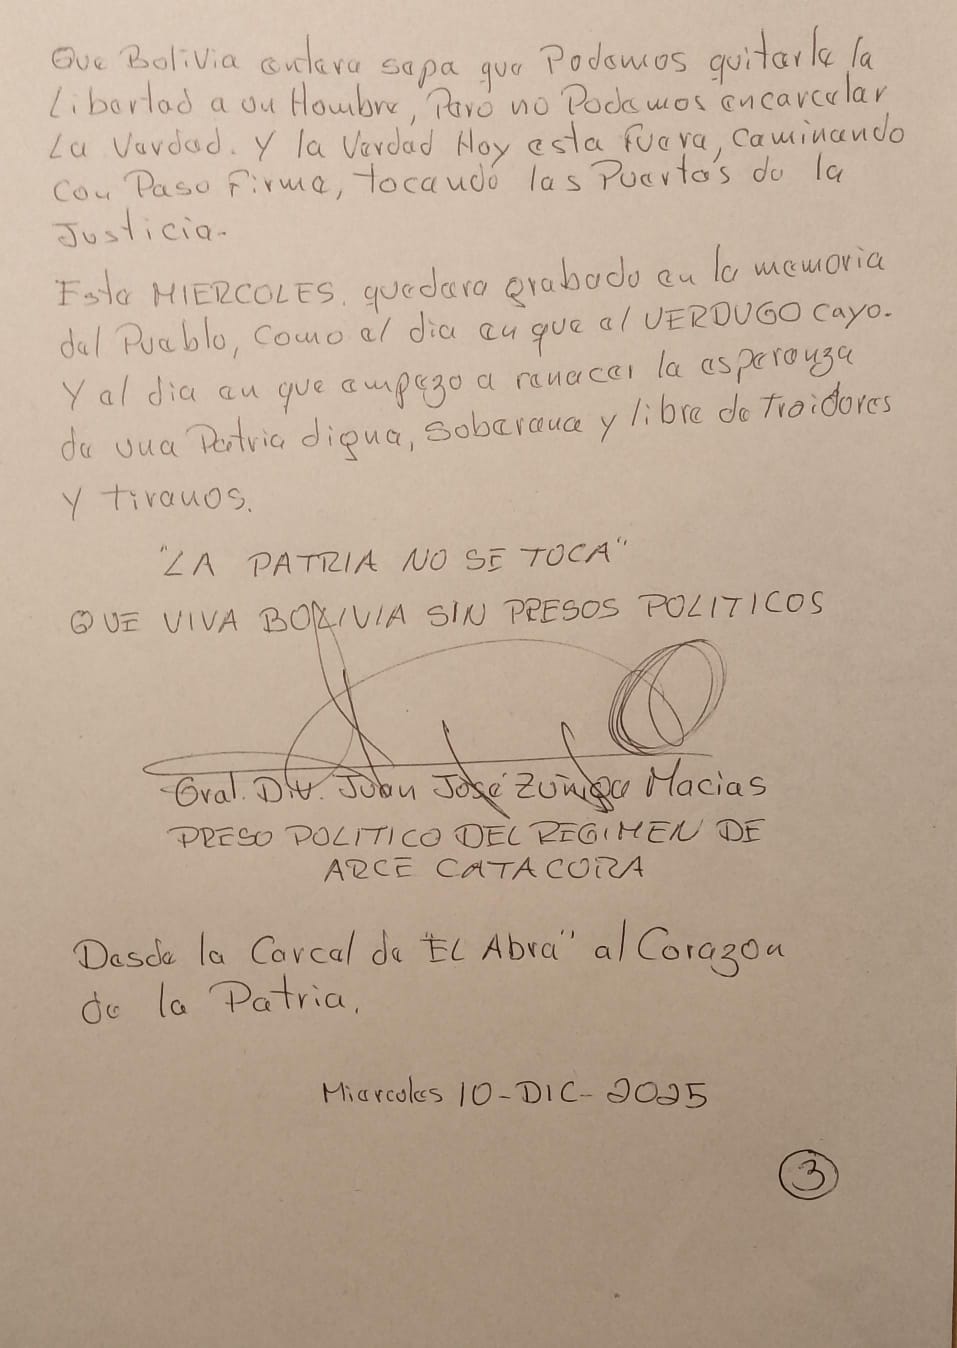 Que Bolivia entera sepa que Podemos quitarle la
Libertad a un Hombre, Pero no Podemos encarcelar
La Verdad. Y la Verdad Hoy esta fuera, caminando
Con Paso Firme, tocando las Puertas de la
Justicia.
Este MIERCOLES. quedara grabado en la memoria
del Pueblo, como el dia en que el VERDUGO cayo.
Y el dia en que empezo a renacer la esperanza
de una Patria digna, soberana y libre de Traidores
y tiranos.
"LA PATRIA NO SE TOCA"
QUE VIVA BOLIVIA SIN PRESOS POLITICOS
Gral. Div. Juan José Zuñiga Macias
PRESO POLITICO DEL REGIMEN DE
ARCE CATACORA
Desde la Carcel de "EL Abra" al Corazon
de la Patria.
Miercoles 10-DIC-2025
3